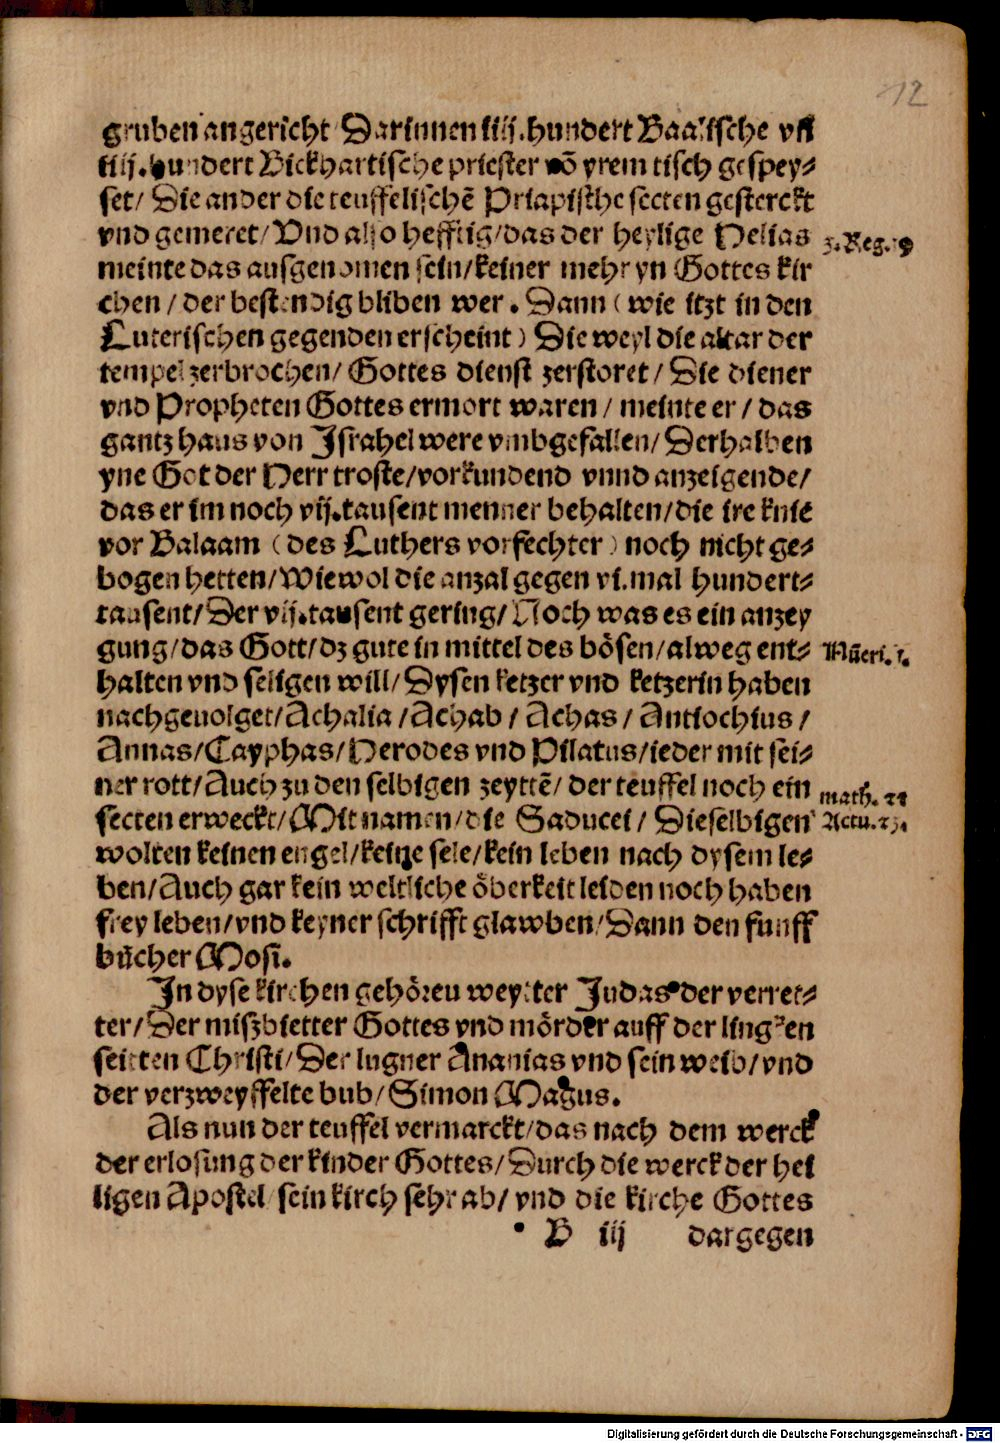 12
gruben angericht Darinnen iiij.hundert Baalische vñ
iiij.hundert Bickhartische priester võ yrem tisch gespey-
set/ Die ander die teuffelischẽ Priapisthe secten gesterckt
vnd gemeret/ Vnd also hefftig/das der heylige Helias
3. Reg. 19
meinte das ausgenomen sein/keiner mehr yn Gottes kir
chen / der bestendig bliben wer . Dann ( wie itzt in den
Luterischen gegenden erscheint ) Die weyl die altar der
tempel zerbrochen/ Gottes dienst zerstoret/ Die diener
vnd Propheten Gottes ermort waren / meinte er / das
gantz haus von Israhel were vmbgefallen/ Derhalben
yne Got der Herr troste/vorkundend vnnd anzeigende/
das er im noch vij.tausent menner behalten/die ire knie
vor Balaam ( des Luthers vorfechter ) noch nicht ge-
bogen hetten/Wiewol die anzal gegen vi.mal hundert-
tausent/Der vij.tausent gering/Noch was es ein anzey
gung/das Gott/dz gute in mittel des bösen/alweg ent-
Nũeri. 1.
halten vnd seligen will/ Dysen ketzer vnd ketzerin haben
nachgeuolget/Athalia /Achab / Achas / Antiochius /
Annas/Cayphas/Herodes vnd Pilatus/ieder mit sei-
ner rott/Auch zu den selbigen zeyttẽ/ der teuffel noch ein
math. 22
secten erweckt/Mit namen/die Saducei / Dieselbigen
Actu. 23.
wolten keinen engel/keine sele/kein leben nach dysem le-
ben/Auch gar kein weltliche öberkeit leiden noch haben
frey leben/vnd keyner schrifft glawben/Dann den funff
bücher Mosi.
In dyse kirchen gehören weytter Judas der verret-
ter/Der miszbietter Gottes vnd mörder auff der lingken
seitten Christi/Der lugner Ananias vnd sein weib/vnd
der verzweyffelte bub/Simon Magus.
Als nun der teuffel vermarckt/das nach dem werck
der erlosung der kinder Gottes/Durch die werck der hei
ligen Apostel sein kirch sehr ab/ vnd die kirche Gottes
B iij dargegen
Digitalisierung gefördert durch die Deutsche Forschungsgemeinschaft - DFG